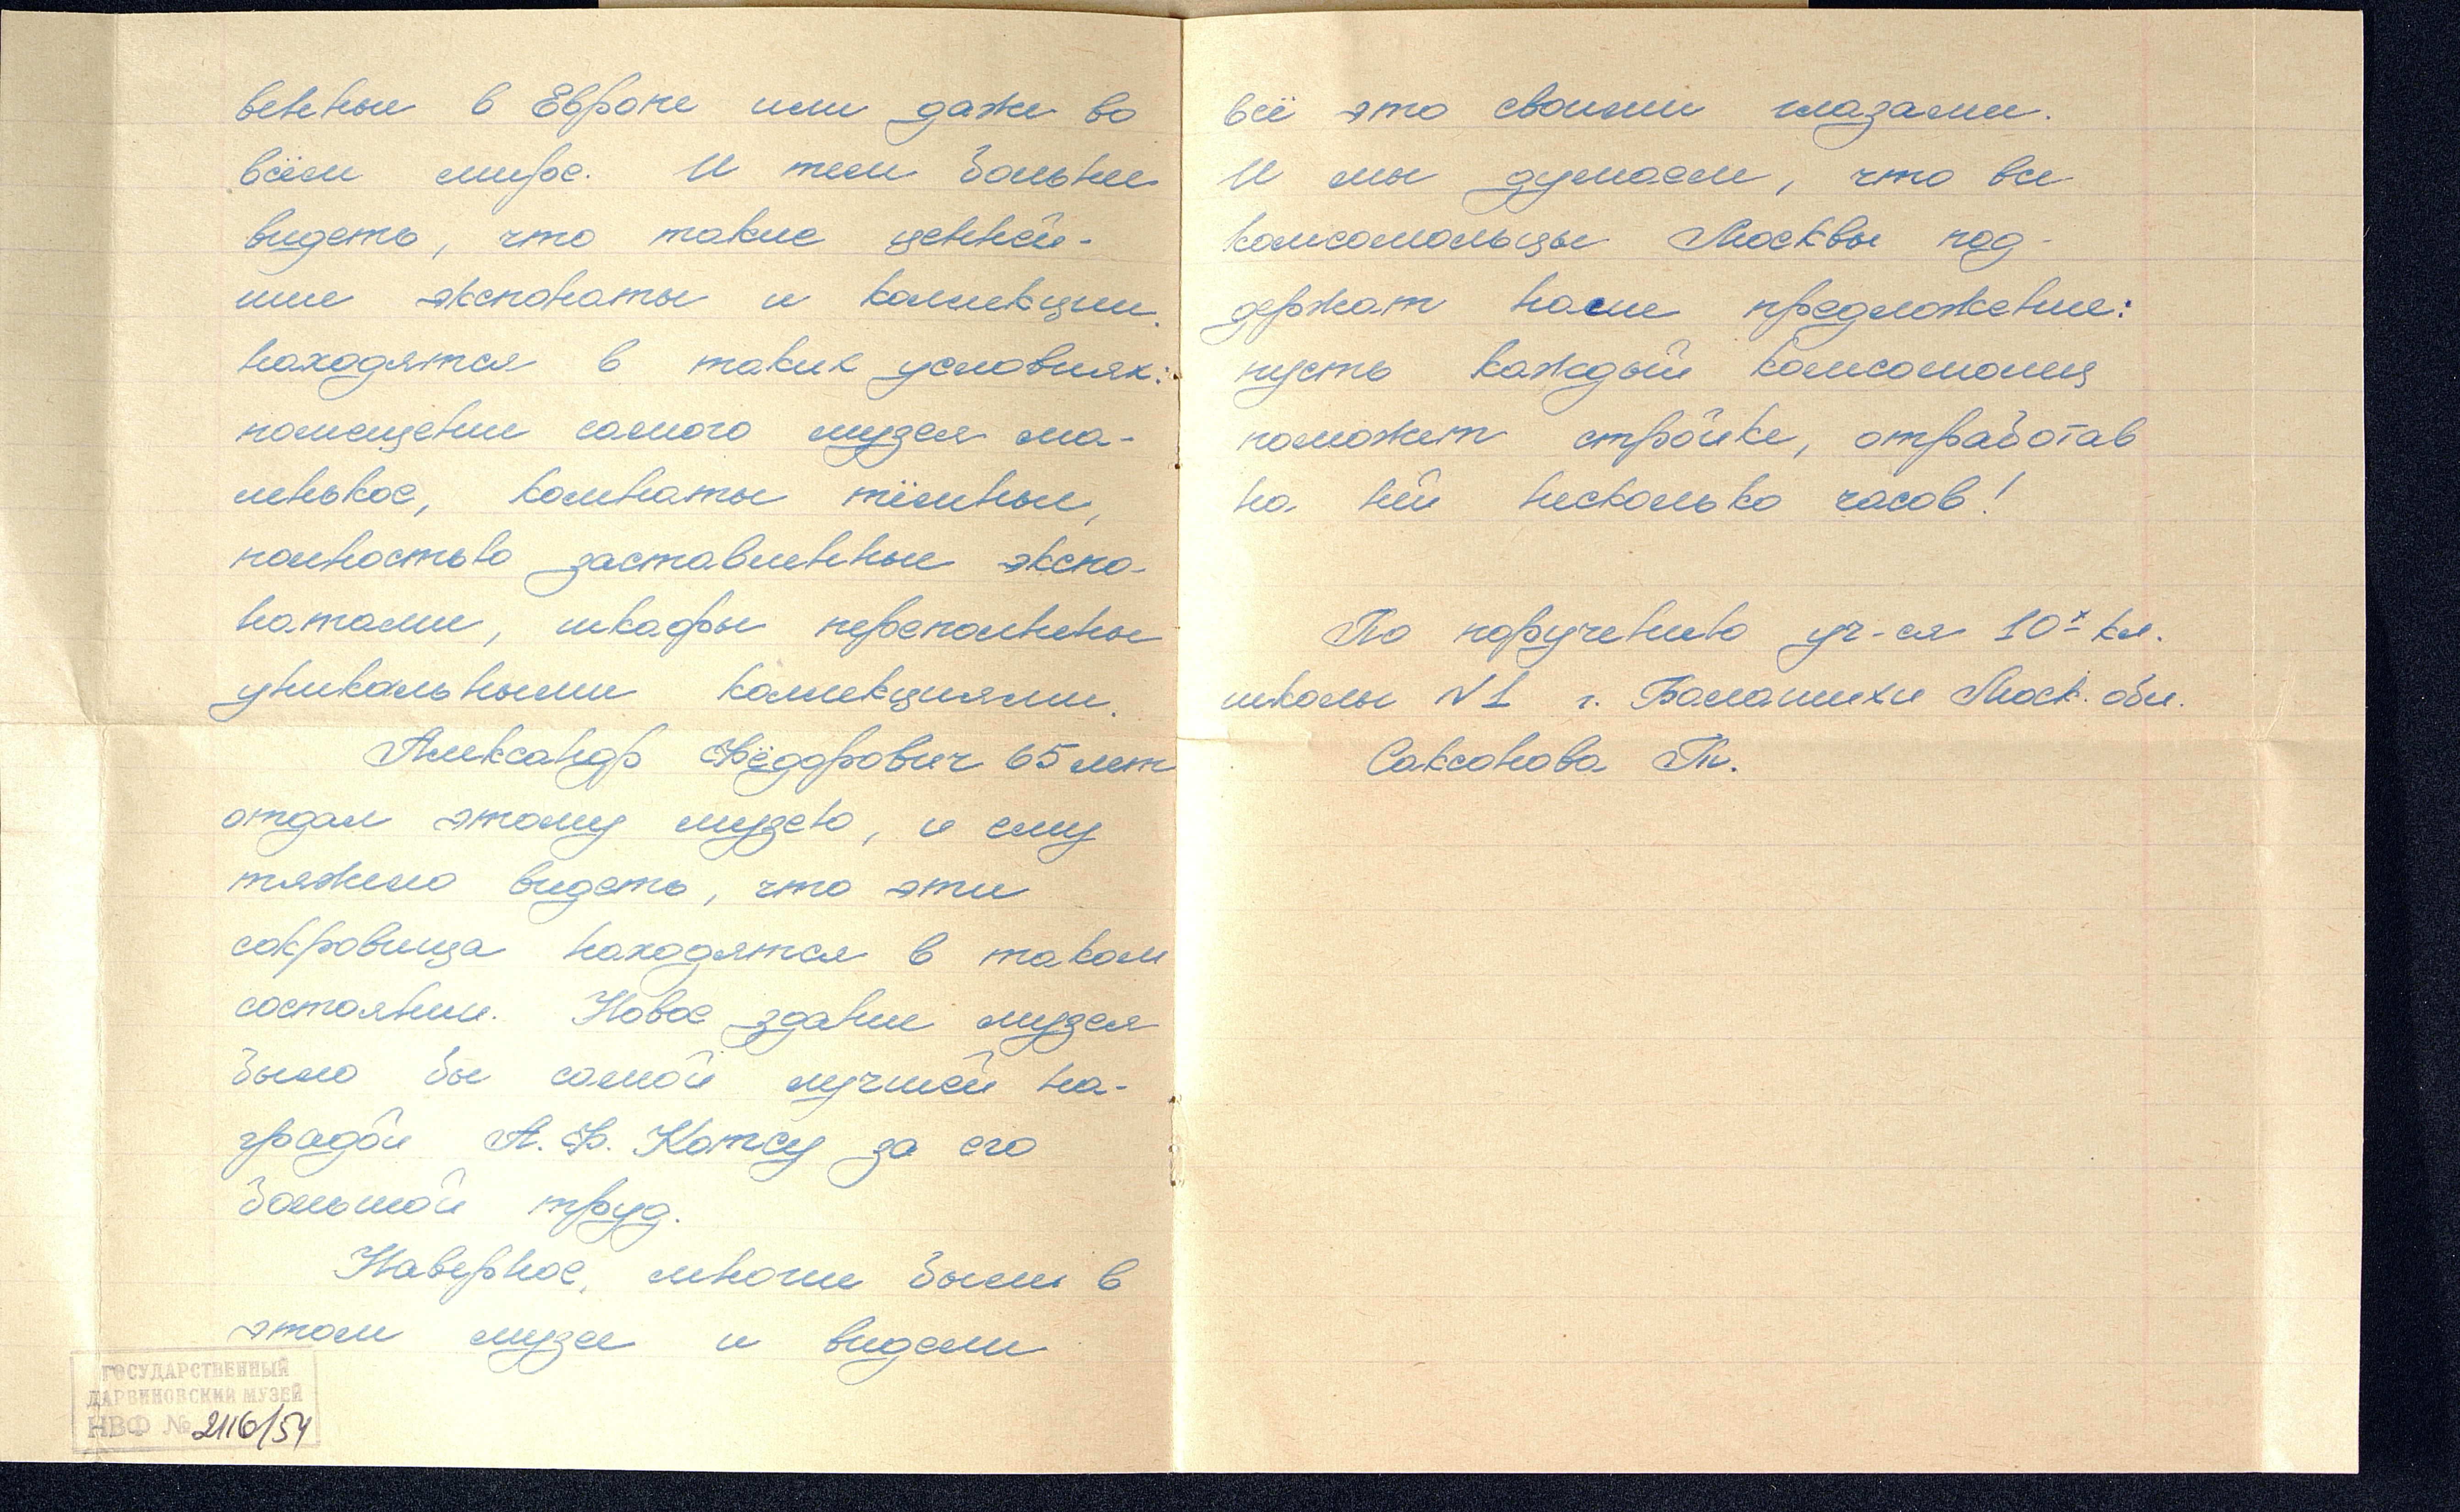 венные в Европе или даже во
всём мире. И тем больнее
видеть, что такие ценней-
шие экспонаты и коллекции
находятся в таких условиях:
помещение самого музея ма-
ленькое, комнаты тёмные,
полностью заставленные экспо-
натами, шкафы переполнены
уникальными коллекциями.
Александр Фёдорович 65 лет
отдал этому музею, и ему
тяжело видеть, что эти
сокровища находятся в таком
состоянии. Новое здание музея
было бы самой лучшей на-
градой А. Ф. Котсу за его
большой труд.
Наверное, многие были в
этом музее и видели
ГОСУДАРСТВЕННЫЙ
ДАРВИНОВСКИЙ МУЗЕЙ
НВФ № 2116/54
всё это своими глазами.
И мы думаем, что все
комсомольцы Москвы под-
держат наше предложение:
пусть каждый комсомолец
поможет стройке, отработав
на ней несколько часов!
По поручению уч-ся 10х кл.
школы N1 г. Балашихи Моск. обл.
Саксонова Т.